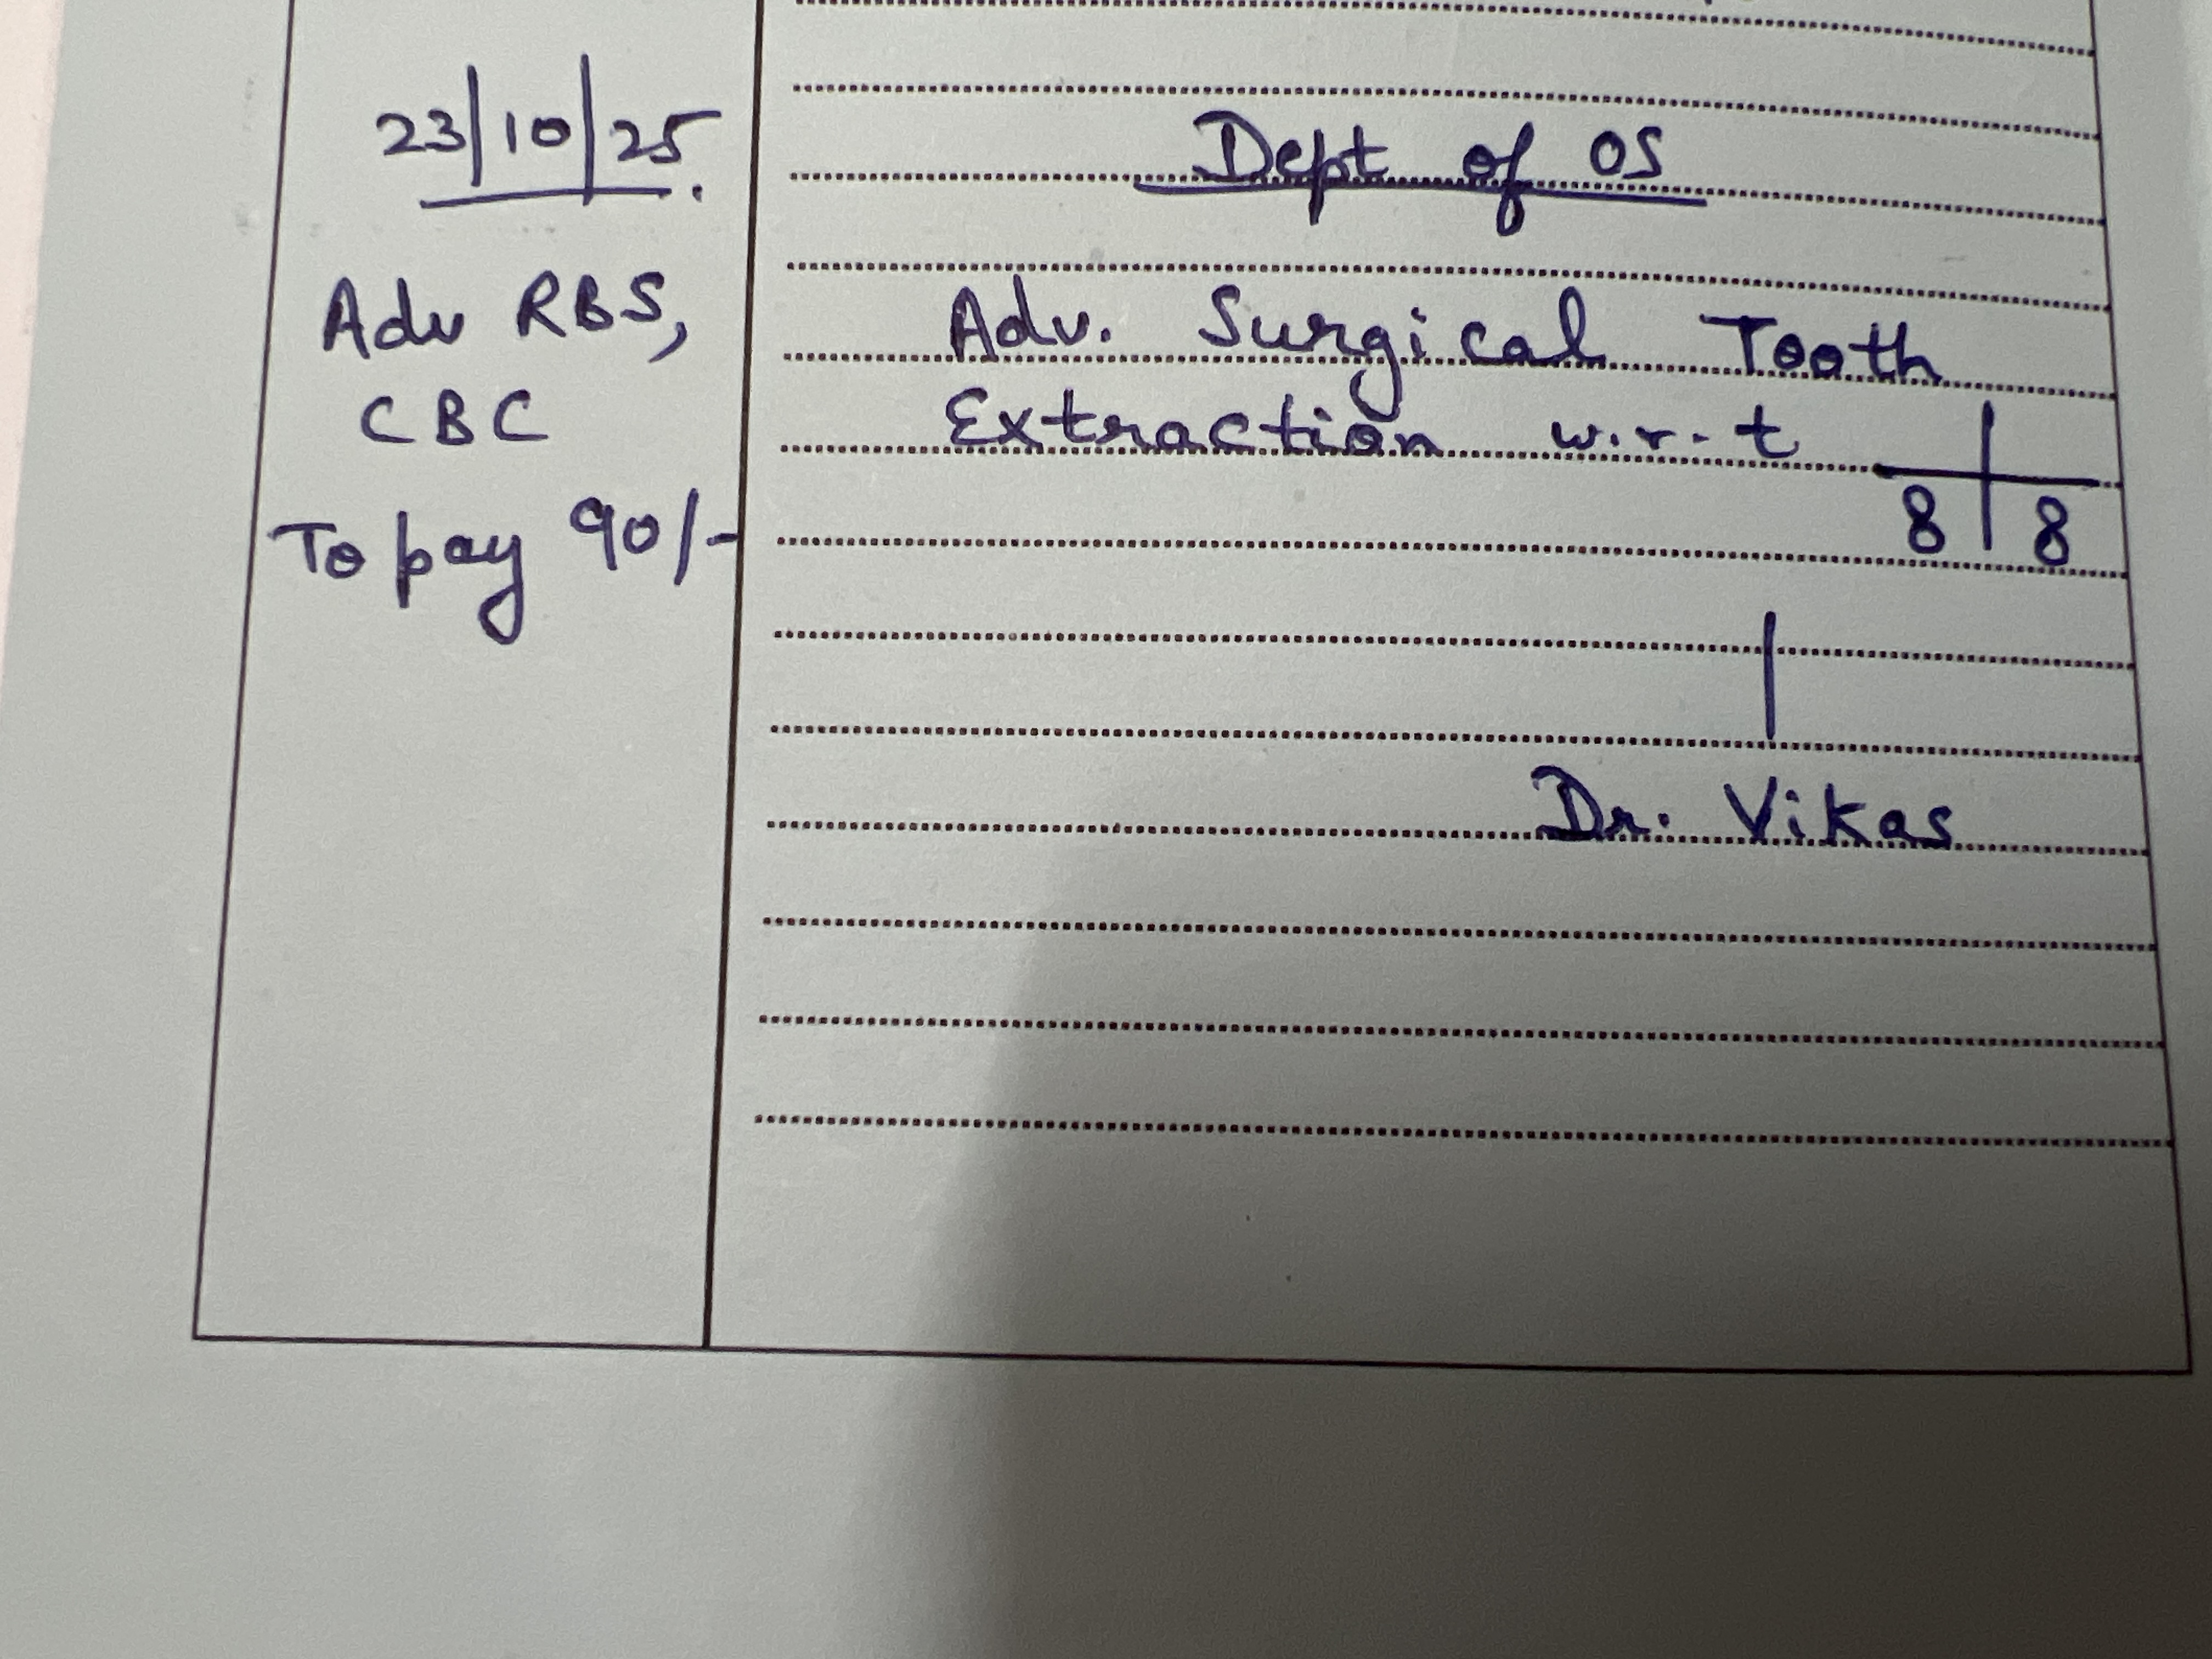 23/10/25.
Adv RBS,
CBC
To pay 90/-
Dept of OS
Adv. Surgical Tooth
Extraction w.r.t
8 | 8
Dr. Vikas